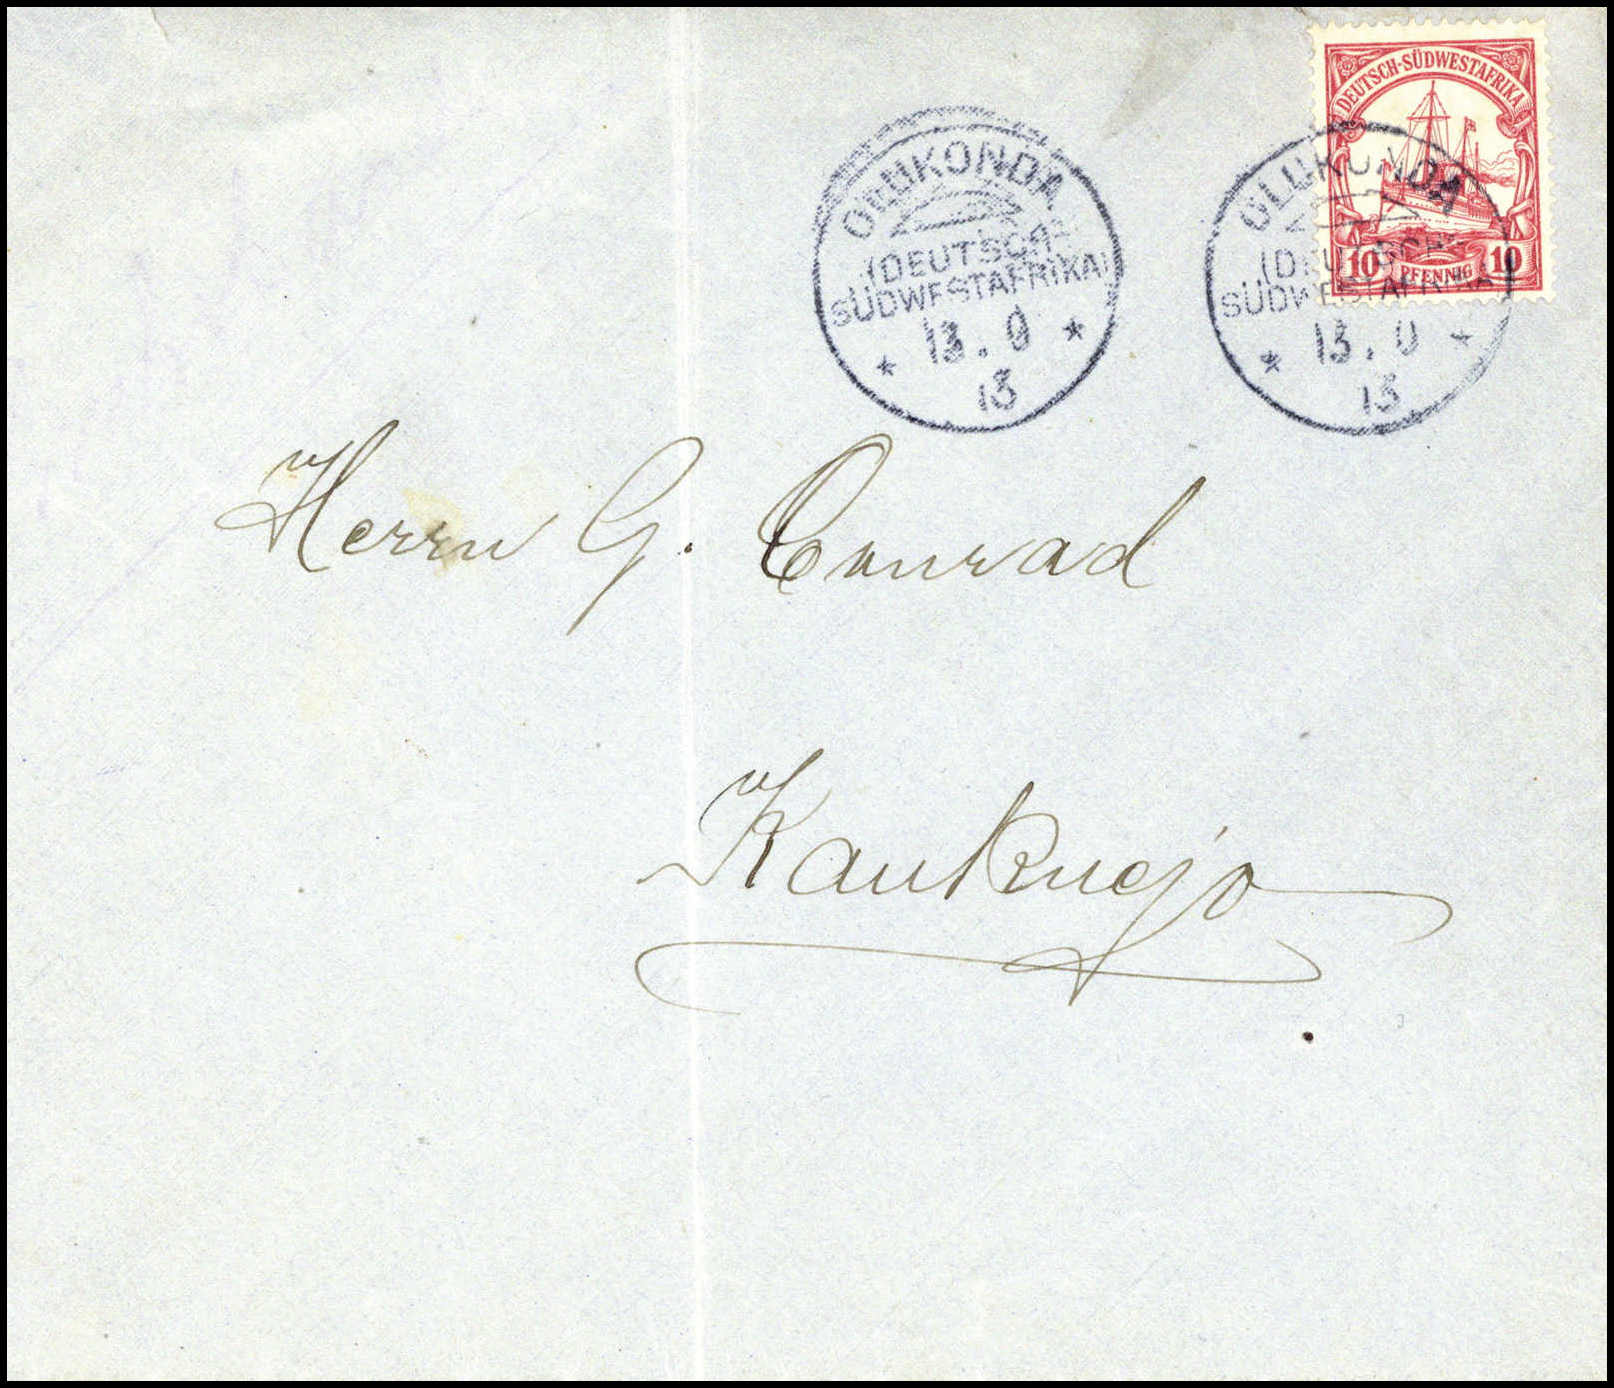 DEUTSCH-SÜDWESTAFRIKA
10 PFENNIG 10
OLUKONDA
(DEUTSCH-
SÜDWESTAFRIKA)
* 13. 9 *
13
OLUKONDA
(DEUTSCH-
SÜDWESTAFRIKA)
* 13. 9 *
13
Herrn G. Conrad
Kaukuejo